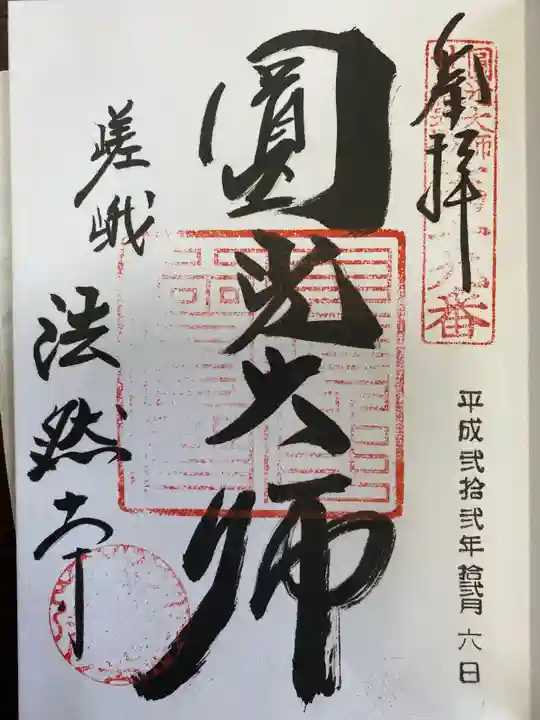 奉拝
圓光大師
第十九番
平成弐拾弐年拾弐月六日
圓光大師
嵯峨
法然寺